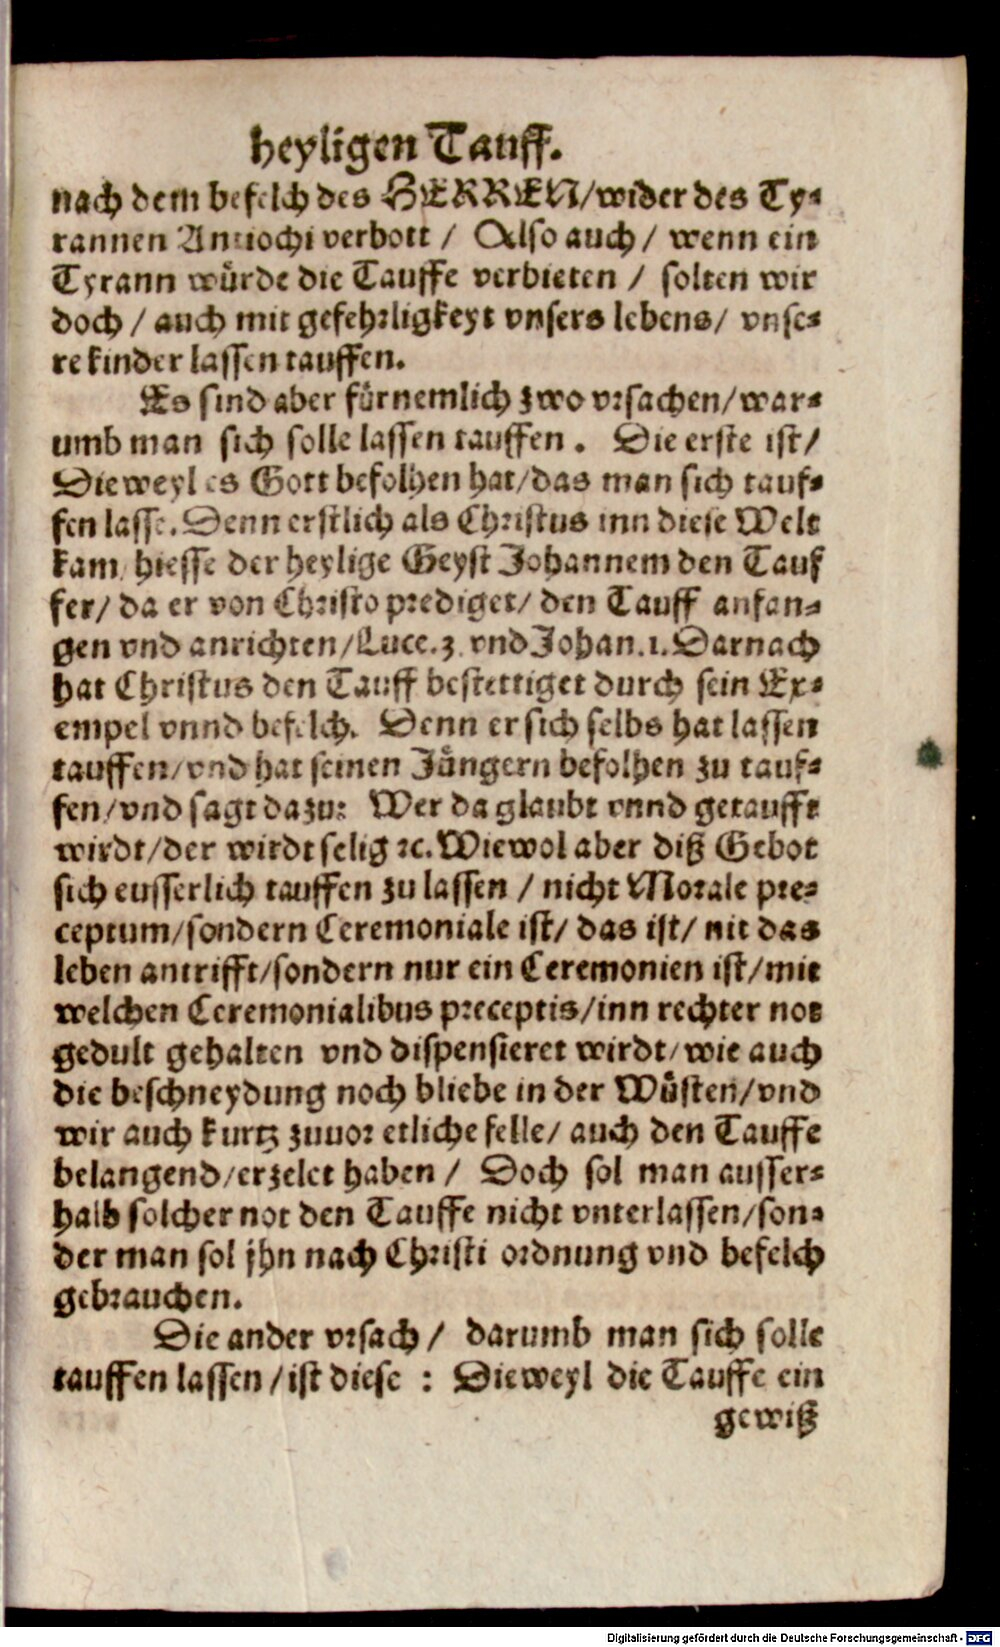 heyligen Tauff.
nach dem befelch des HERREN/wider des Ty-
rannen Antiochi verbott / Also auch / wenn ein
Tyrann würde die Tauffe verbieten / solten wir
doch / auch mit gefehrligkeyt vnsers lebens/ vnse-
re kinder lassen tauffen.
Es sind aber fürnemlich zwo vrsachen/war-
umb man sich solle lassen tauffen. Die erste ist/
Dieweyl es Gott befolhen hat/das man sich tauf-
fen lasse. Denn erstlich als Christus inn diese Welt
kam/ hiesse der heylige Geyst Johannem den Tauf
fer/ da er von Christo prediget/ den Tauff anfan-
gen vnd anrichten/Luce.3. vnd Johan.1. Darnach
hat Christus den Tauff bestettiget durch sein Ex-
empel vnnd befelch. Denn er sich selbs hat lassen
tauffen/vnd hat seinen Jüngern befolhen zu tauf-
fen/vnd sagt dazu: Wer da glaubt vnnd getaufft
wirdt/der wirdt selig ꝛc. Wiewol aber diß Gebot
sich eusserlich tauffen zu lassen / nicht Morale pre-
ceptum/sondern Ceremoniale ist/ das ist/ nit das
leben antrifft/sondern nur ein Ceremonien ist/mit
welchen Ceremonialibus preceptis/inn rechter not
gedult gehalten vnd dispensieret wirdt/wie auch
die beschneydung noch bliebe in der Wüsten/vnd
wir auch kurtz zuuor etliche felle/ auch den Tauffe
belangend/erzelet haben / Doch sol man ausser-
halb solcher not den Tauffe nicht vnterlassen/son-
der man sol jhn nach Christi ordnung vnd befelch
gebrauchen.
Die ander vrsach / darumb man sich solle
tauffen lassen / ist diese : Dieweyl die Tauffe ein
gewiß
Digitalisierung gefördert durch die Deutsche Forschungsgemeinschaft - DFG